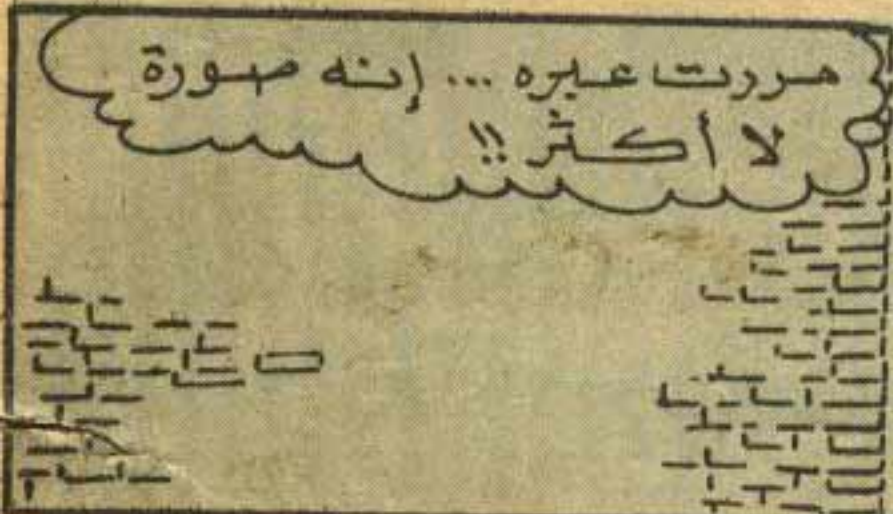 مررت عبره ... إنه صورة
لا أكثر !!